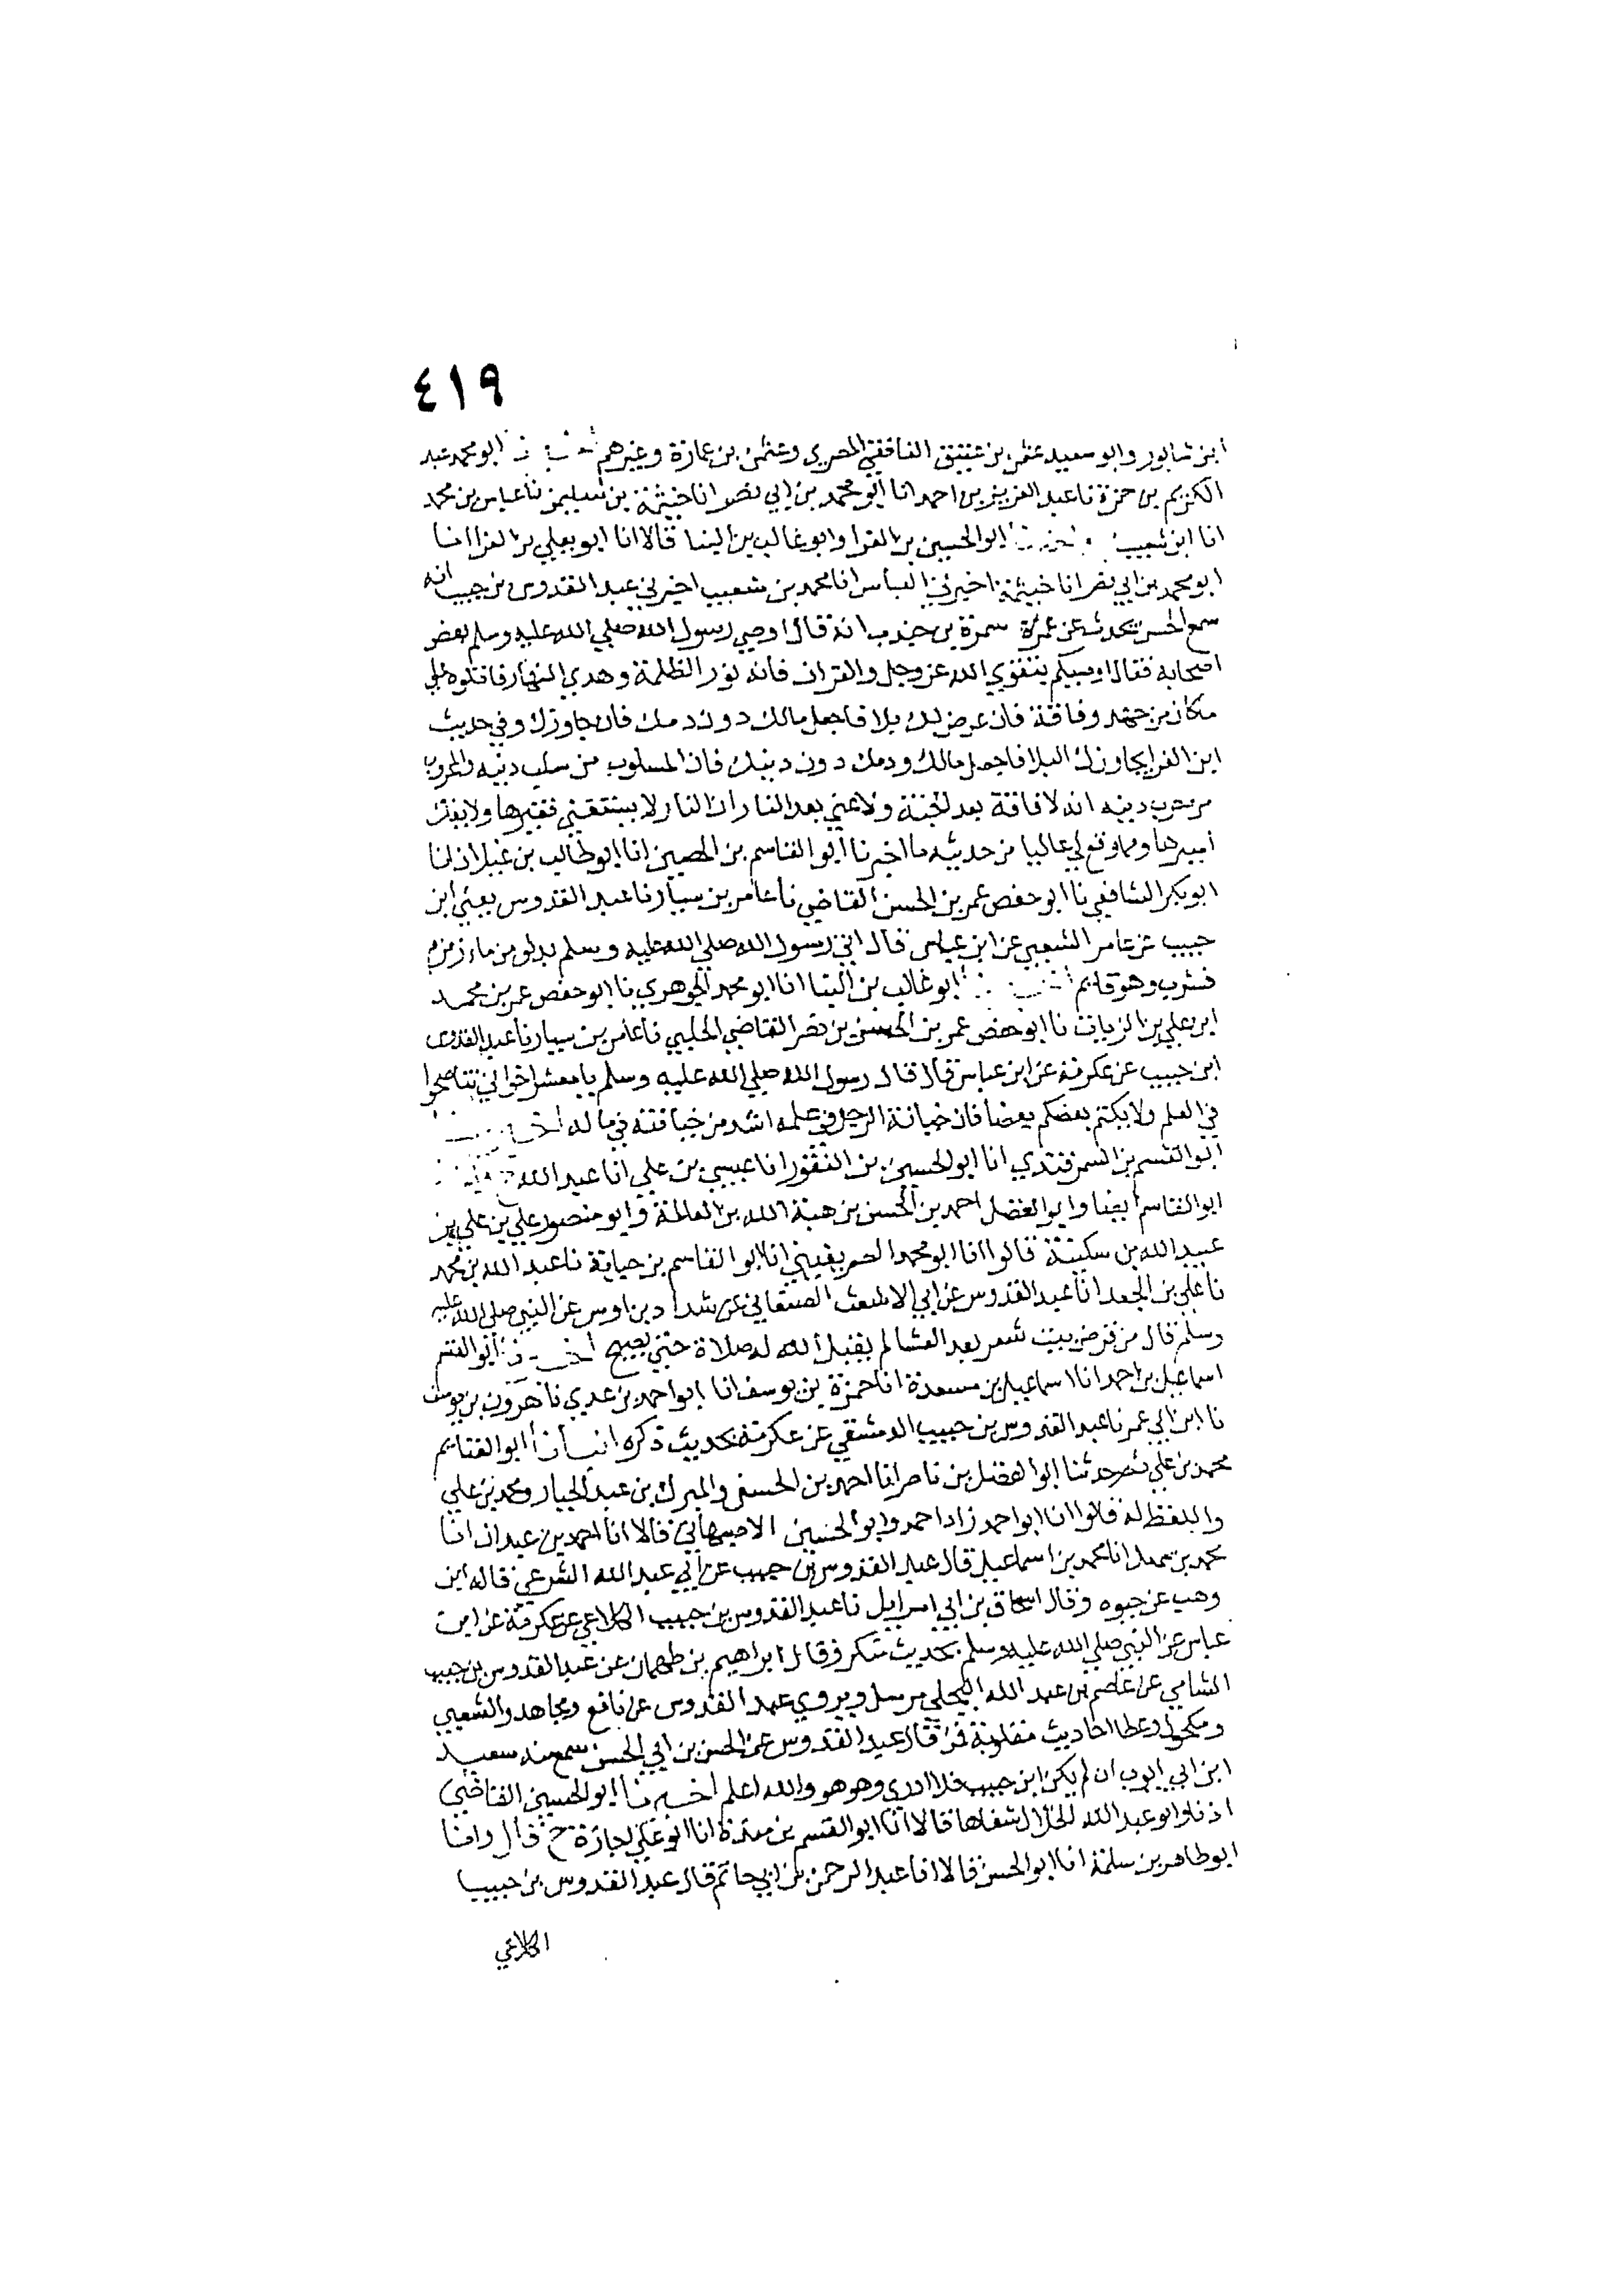 ٤١٩
ابن شابور وابو سعيد عثمن بن عتيق الغافقي المصري وعثمن بن عمارة وغيرهم ابو محمد عبد
الكريم بن حمزة نا عبد العزيز بن احمد انا ابو محمد بن ابي نصر انا خيثمة بن سليمن نا عباس بن محمد
انا ابن شعيب ابو الحسين بن الفرا وابو غالب بن البنا قالا انا ابو يعلي بن الفرا انا
ابو محمد بن ابي نصر انا خيثمة اخبرني العباس انا محمد بن شعيب اخبرني عبد القدوس بن حبيب انه
سمع الحسن يحدث عن سمرة بن جندب انه قال اوصي رسول الله صلي الله عليه وسلم بعض
اصحابه فقال اوصيكم بتقوي الله عز وجل والقران فانه نور الظلمة وهدي النهار فاتلوه علي
ماكان من جهد وفاقة فان عرض لك بلا فاجعل مالك دون دمك فان جاوزك وفي حديث
ابن الفرا يجاوزك البلا فاجعل مالك ودمك دون دينك فان المسلوب من سلب دينه والمحروب
من حرب دينه انه لا فاقة بعد الجنة ولا غني بعد النار ان النار لا يستغني فقيرها ولا يفك
اسيرها ومما وقع لي عاليا من حديثه ما اخبرنا ابو القاسم بن الحصين انا ابو طالب بن غيلان انا
ابو بكر الشافعي نا ابو حفص عمر بن الحسن القاضي نا عامر بن سيار نا عبد القدوس يعني ابن
حبيب عن عامر الشعبي عن ابن عباس قال اتي رسول الله صلي الله عليه وسلم بدلو من ماء زمزم
فشرب وهو قايم ابو غالب بن البنا انا ابو محمد الجوهري نا ابو حفص عمر بن محمد
ابن علي بن الزيات نا ابو حفص عمر بن الحسن بن نصر القاضي الحلبي نا عامر بن سيار نا عبد القدوس
ابن حبيب عن عكرمة عن ابن عباس قال قال رسول الله صلي الله عليه وسلم يا معشر اخواني تناصحوا
في العلم ولا يكتم بعضكم بعضا فان خيانة الرجل في علمه اشد من خيانته في ماله
ابو القسم بن السمرقندي انا ابو الحسين بن النقور انا عيسي بن علي انا عبد الله
ابو القاسم ايضا وابو الفضل احمد بن الحسن بن هبة الله بن العالمة وابو منصور علي بن علي بن
عبيد الله بن سكينة قالوا انا ابو محمد الصريفيني انا ابو القاسم بن حبابة نا عبد الله بن محمد
نا علي بن الجعد انا عبد القدوس عن ابي الاشعث الصنعاني عن شداد بن اوس عن النبي صلي الله عليه
وسلم قال من قرض بيت شعر بعد العشا لم يقبل الله له صلاة حتي يصبح ابو القسم
اسماعيل بن احمد انا اسماعيل بن مسعدة انا حمزة بن يوسف انا ابو احمد بن عدي نا هرون بن يوسف
نا ابن ابي عمر نا عبد القدوس بن حبيب الدمشقي عن عكرمة بحديث ذكره انبانا ابو الغنايم
محمد بن علي ثم حدثنا ابو الفضل بن ناصر انا احمد بن الحسن والمبرك بن عبد الجبار ومحمد بن علي
واللفظ له قالوا انا ابو احمد زاد احمد وابو الحسين الاصبهاني قالا انا احمد بن عبدان انا
محمد بن سهل انا محمد بن اسماعيل قال عبد القدوس بن حبيب عن ابي عبد الله الشرعبي قاله ابن
وهب عن حيوه وقال اسحاق بن ابي اسرايل نا عبد القدوس بن حبيب الكلاعي عن عكرمة عن ابن
عباس عن النبي صلي الله عليه وسلم بحديث منكر وقال ابراهيم بن طهمان عن عبد القدوس بن حبيب
الشامي عن عاصم بن عبد الله البجلي مرسل ويروي عبد القدوس عن نافع ومجاهد والشعبي
ومكحول وعطا احاديث مقلوبة قال عبد القدوس عن الحسن بن ابي الحسن سمع منه سعيد
ابن ابي ايوب ان لم يكن ابن حبيب فلا ادري وهو هو والله اعلم اخبرنا ابو الحسين القاضي
اذنا وابو عبد الله الخلال شفاها قالا انا ابو القسم بن مندة انا ابو علي اجازة ح قال وانا
ابو طاهر بن سلمة انا ابو الحسن قالا انا عبد الرحمن بن ابي حاتم قال عبد القدوس بن حبيب
الكلاعي